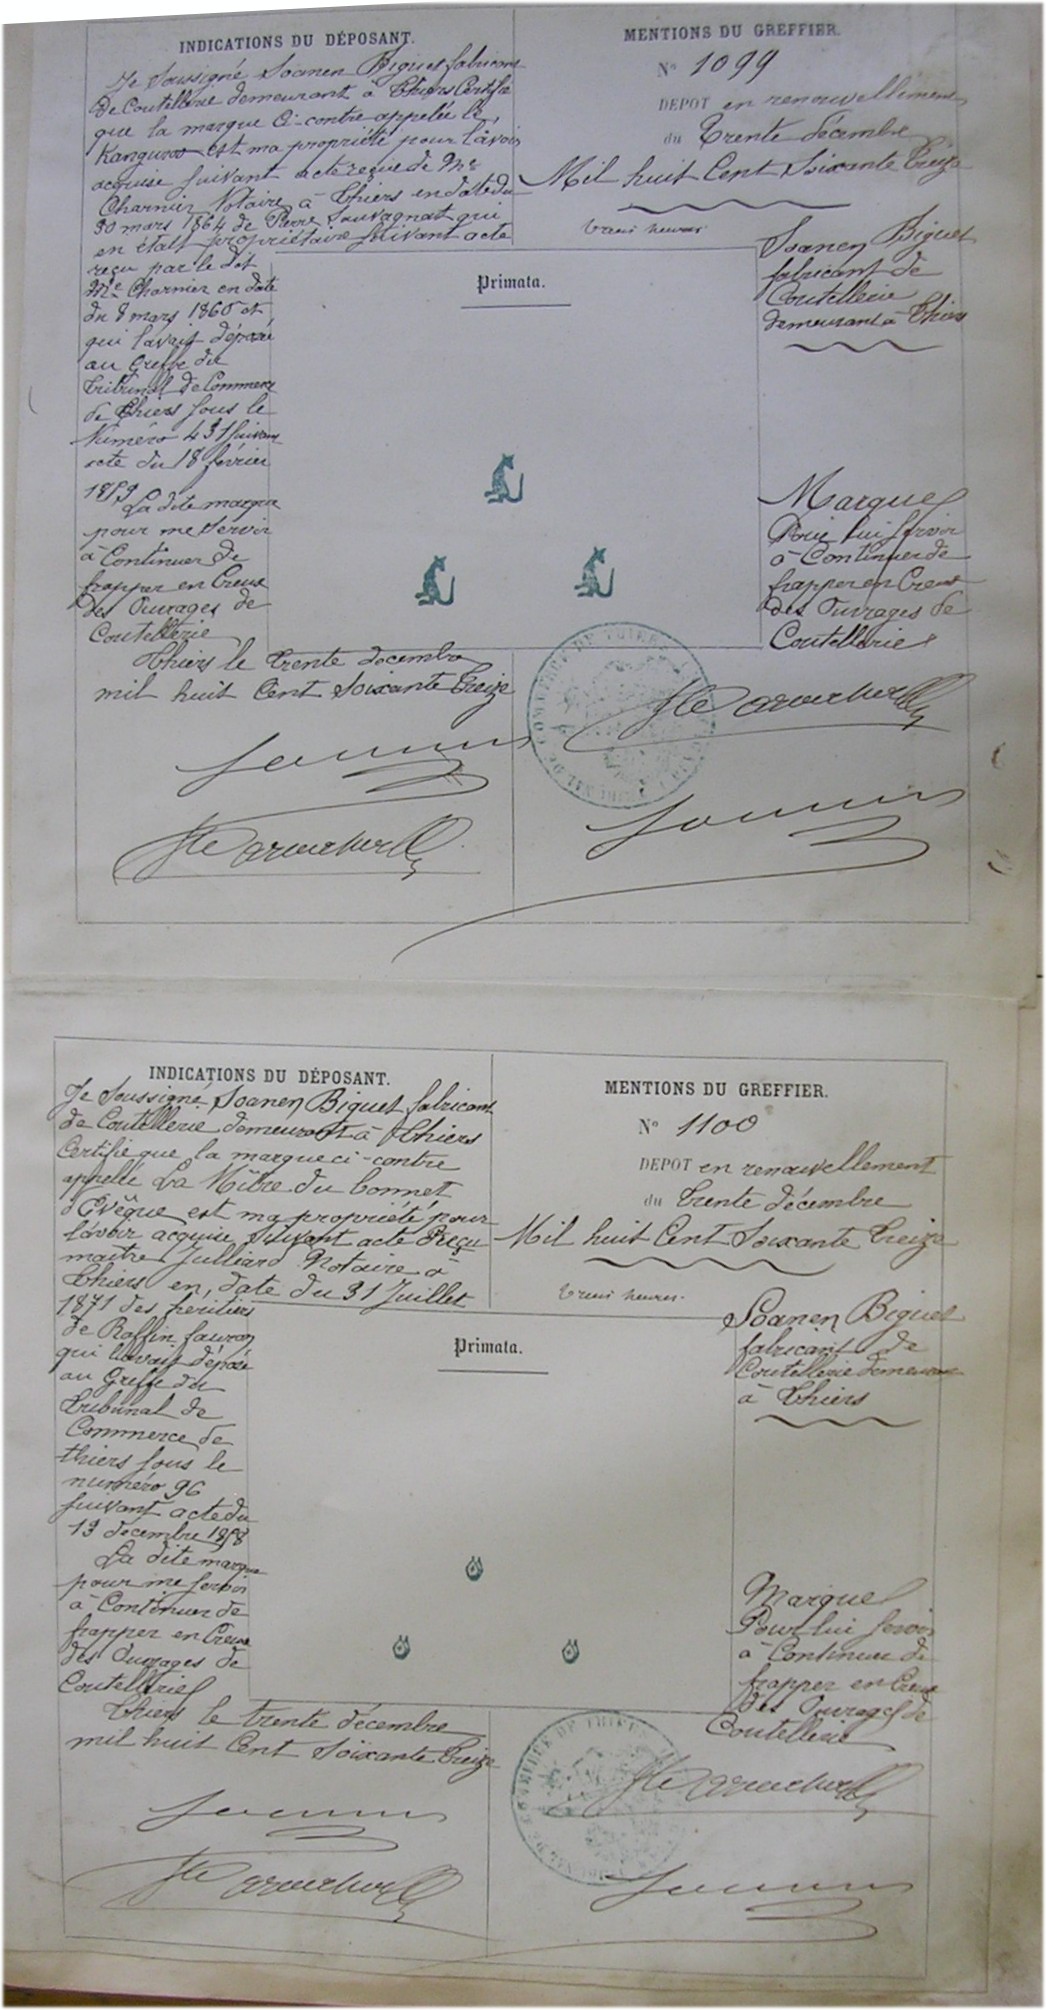 INDICATIONS DU DÉPOSANT.
Je Soussigné Soanen Biguet fabricant
De Coutellerie demeurant à Thiers Certifie
que la marque Ci-contre appelée le
Kanguroo est ma propriété pour l'avoir
acquise suivant acte reçue de Me
Charnier Notaire à Thiers en date du
30 mars 1864 de Pierre Sauvagnat qui
en était propriétaire suivant acte
reçu par le dit
Me Charnier en date
du 8 mars 1860 et
qui l'avait déposée
au Greffe du
Tribunal de Commerce
de Thiers sous le
Numéro 431 suivant
acte du 18 février
1859
La dite marque
pour me servir
à Continuer de
frapper en Creux
des Ouvrages de
Coutellerie
Thiers le trente décembre
mil huit Cent Soixante Treize
MENTIONS DU GREFFIER.
No 1099
DEPOT en renouvellement
du Trente décembre
Mil huit Cent Soixante Treize
trois heures
Soanen Biguet
fabricant de
Coutellerie
demeurant à Thiers
Primata.
Marque
Pour lui servir
à Continuer de
frapper en Creux
des Ouvrages de
Coutellerie
INDICATIONS DU DÉPOSANT.
Je Soussigné Soanen Biguet fabricant
de Coutellerie demeurant à Thiers
Certifie que la marque ci-contre
appellé La Mitre du bonnet
d'Evêque est ma propriété pour
l'avoir acquise suivant acte Reçu
maitre Julliard Notaire à
Thiers en date du 31 Juillet
1871 des heritiers
de Roffin fauron
qui l'avait déposée
au Greffe du
Tribunal de
Commerce de
thiers sous le
numéro 96
suivant acte du
13 decembre 1858
La dite marque
pour me servir
à Continuer de
frapper en Creux
des Ouvrages de
Coutellerie
Thiers le trente décembre
mil huit Cent Soixante Treize
MENTIONS DU GREFFIER.
No 1100
DEPOT en renouvellement
du trente décembre
Mil huit Cent Soixante Treize
trois heures.
Soanen Biguet
fabricant de
Coutellerie demeurant
à Thiers
Primata.
Marque
Pour lui servir
à Continuer de
frapper en Creux
des Ouvrages de
Coutellerie